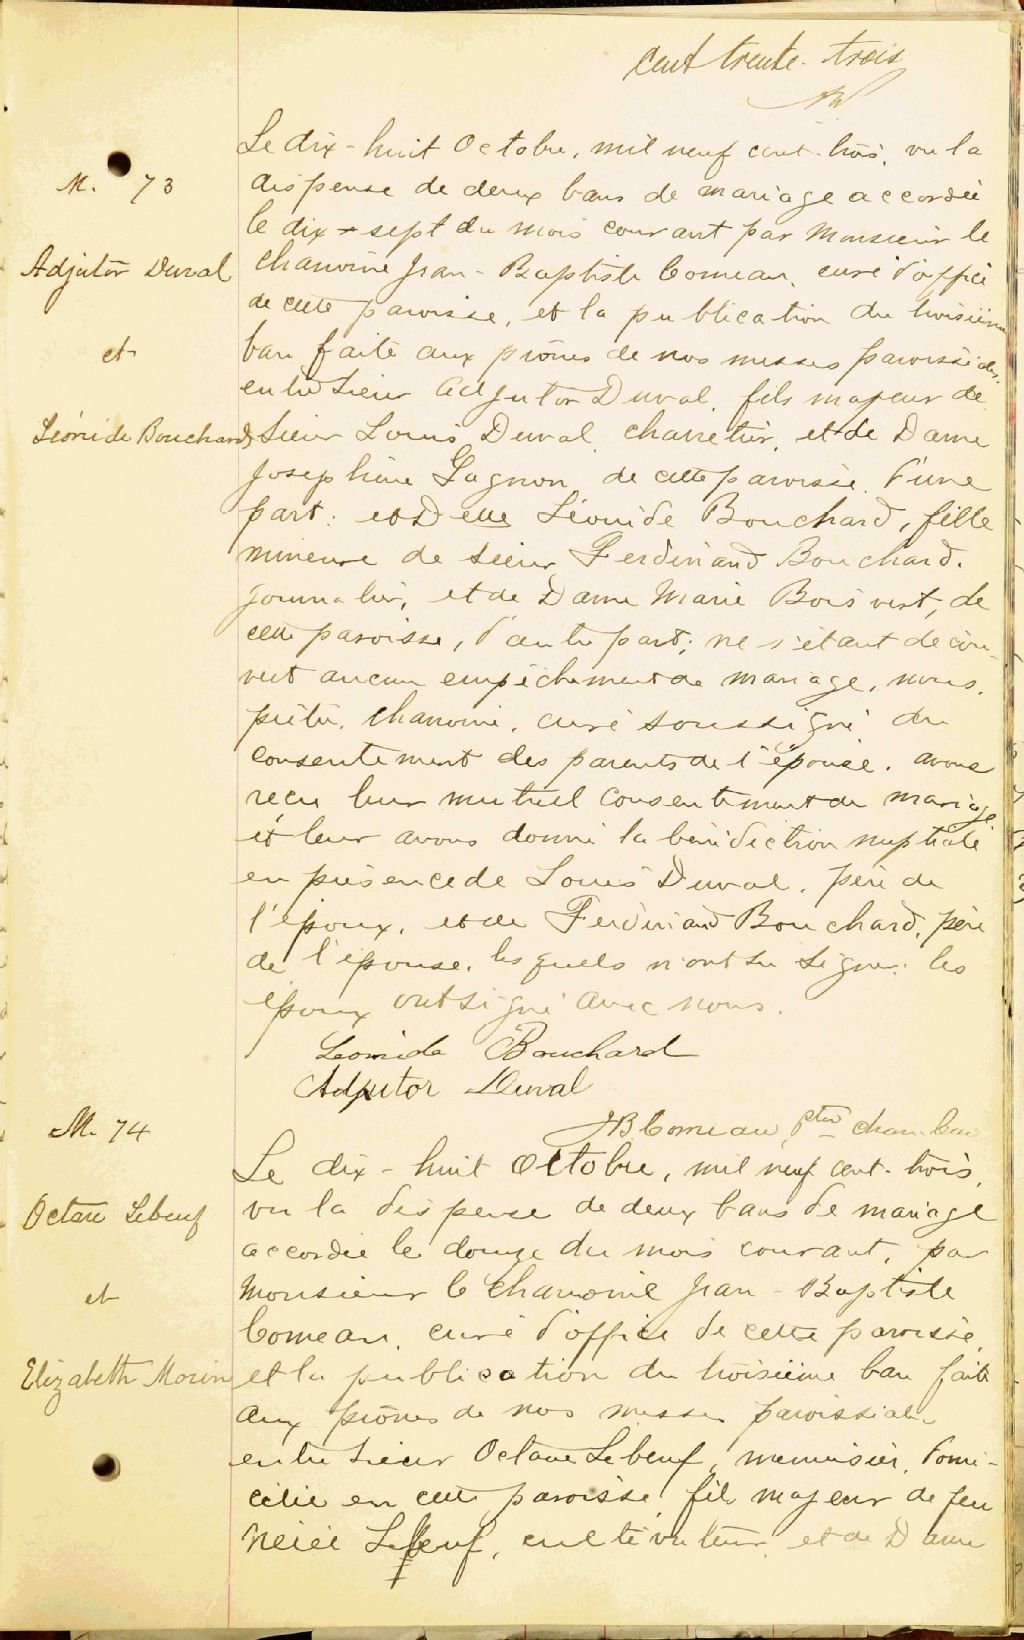 cent trente-trois
M. 73
Adjutor Duval
et
Léonide Bouchard
Le dix-huit Octobre, mil neuf cent-trois, vu la
dispense de deux bans de mariage accordée
le dix-sept du mois courant par Monsieur le
chanoine Jean-Baptiste Comeau, curé d'office
de cette paroisse, et la publication du troisième
ban faite aux prônes de nos messes paroissiales,
entre Sieur Adjutor Duval, fils majeur de
Sieur Louis Duval, charretier, et de Dame
Joséphine Gagnon, de cette paroisse, d'une
part; et Delle Léonide Bouchard, fille
mineure de Sieur Ferdinand Bouchard,
journalier, et de Dame Marie Boisvert, de
cette paroisse, d'autre part; ne s'étant décou-
vert aucun empêchement de mariage, nous,
prêtre, chanoine, curé soussigné, du
consentement des parents de l'épouse, avons
reçu leur mutuel consentement de mariage
et leur avons donné la bénédiction nuptiale
en présence de Louis Duval, père de
l'époux, et de Ferdinand Bouchard, père
de l'épouse, lesquels n'ont su signer; les
époux ont signé avec nous.
Leonide Bouchard
Adjutor Duval
JB Comeau, Ptre chan. Curé
M. 74
Octave Lebeuf
et
Elizabeth Morin
Le dix-huit Octobre, mil neuf cent-trois,
vu la dispense de deux bans de mariage
accordée le douze du mois courant, par
Monsieur le Chanoine Jean-Baptiste
Comeau, curé d'office de cette paroisse,
et la publication du troisième ban faite
aux prônes de nos messes paroissiales
entre Sieur Octave Lebeuf, menuisier, domi-
cilié en cette paroisse, fils majeur de feu
Lebeuf, cultivateur, et de Dame